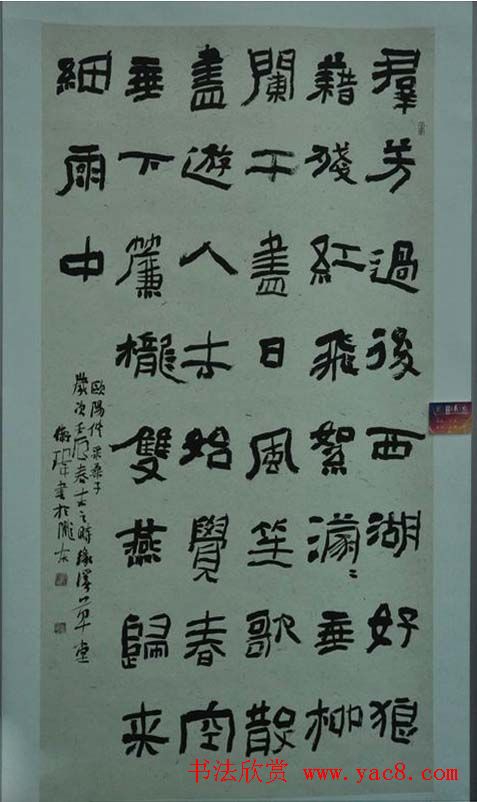 羣芳過後西湖好狼
藉殘紅飛絮濛〻垂柳
闌干盡日風笙歌散
盡遊人去始覺春空
垂下簾櫳雙燕歸来
細雨中
歐陽修采桑子
歲次壬辰春之時緣溪草堂
書於隴右
书法欣赏 www.yac8.com